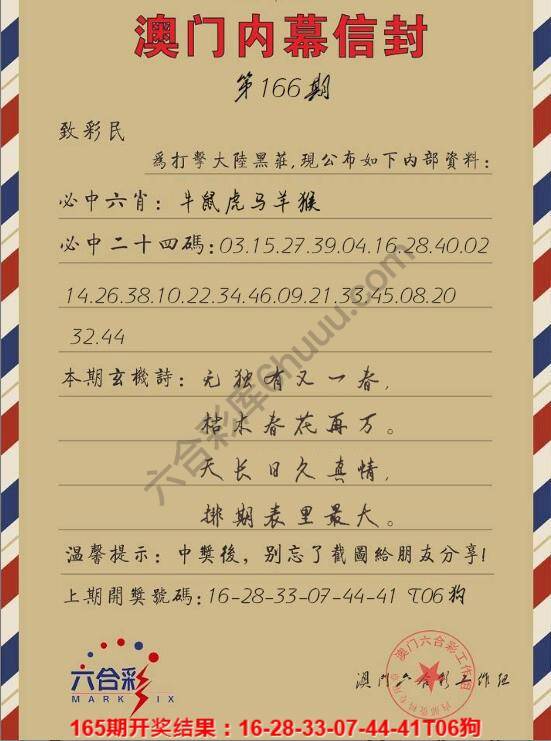 澳门内幕信封
第166期
致彩民
為打擊大陸黑莊,現公布如下内部資料:
必中六肖: 牛鼠虎马羊猴
必中二十四碼:03.15.27.39.04.16.28.40.02
14.26.38.10.22.34.46.09.21.33.45.08.20
32.44
本期玄機詩: 无独有又一春,
枯木春花再万。
天长日久真情,
排期表里最大。
温馨提示: 中獎後, 别忘了截圖給朋友分享!
上期開獎號碼:16-28-33-07-44-41 T06狗
六合彩库6huuu.com
六合彩
MARK SIX
澳门六合彩工作组
澳门六合彩工作组
165期开奖结果：16-28-33-07-44-41T06狗